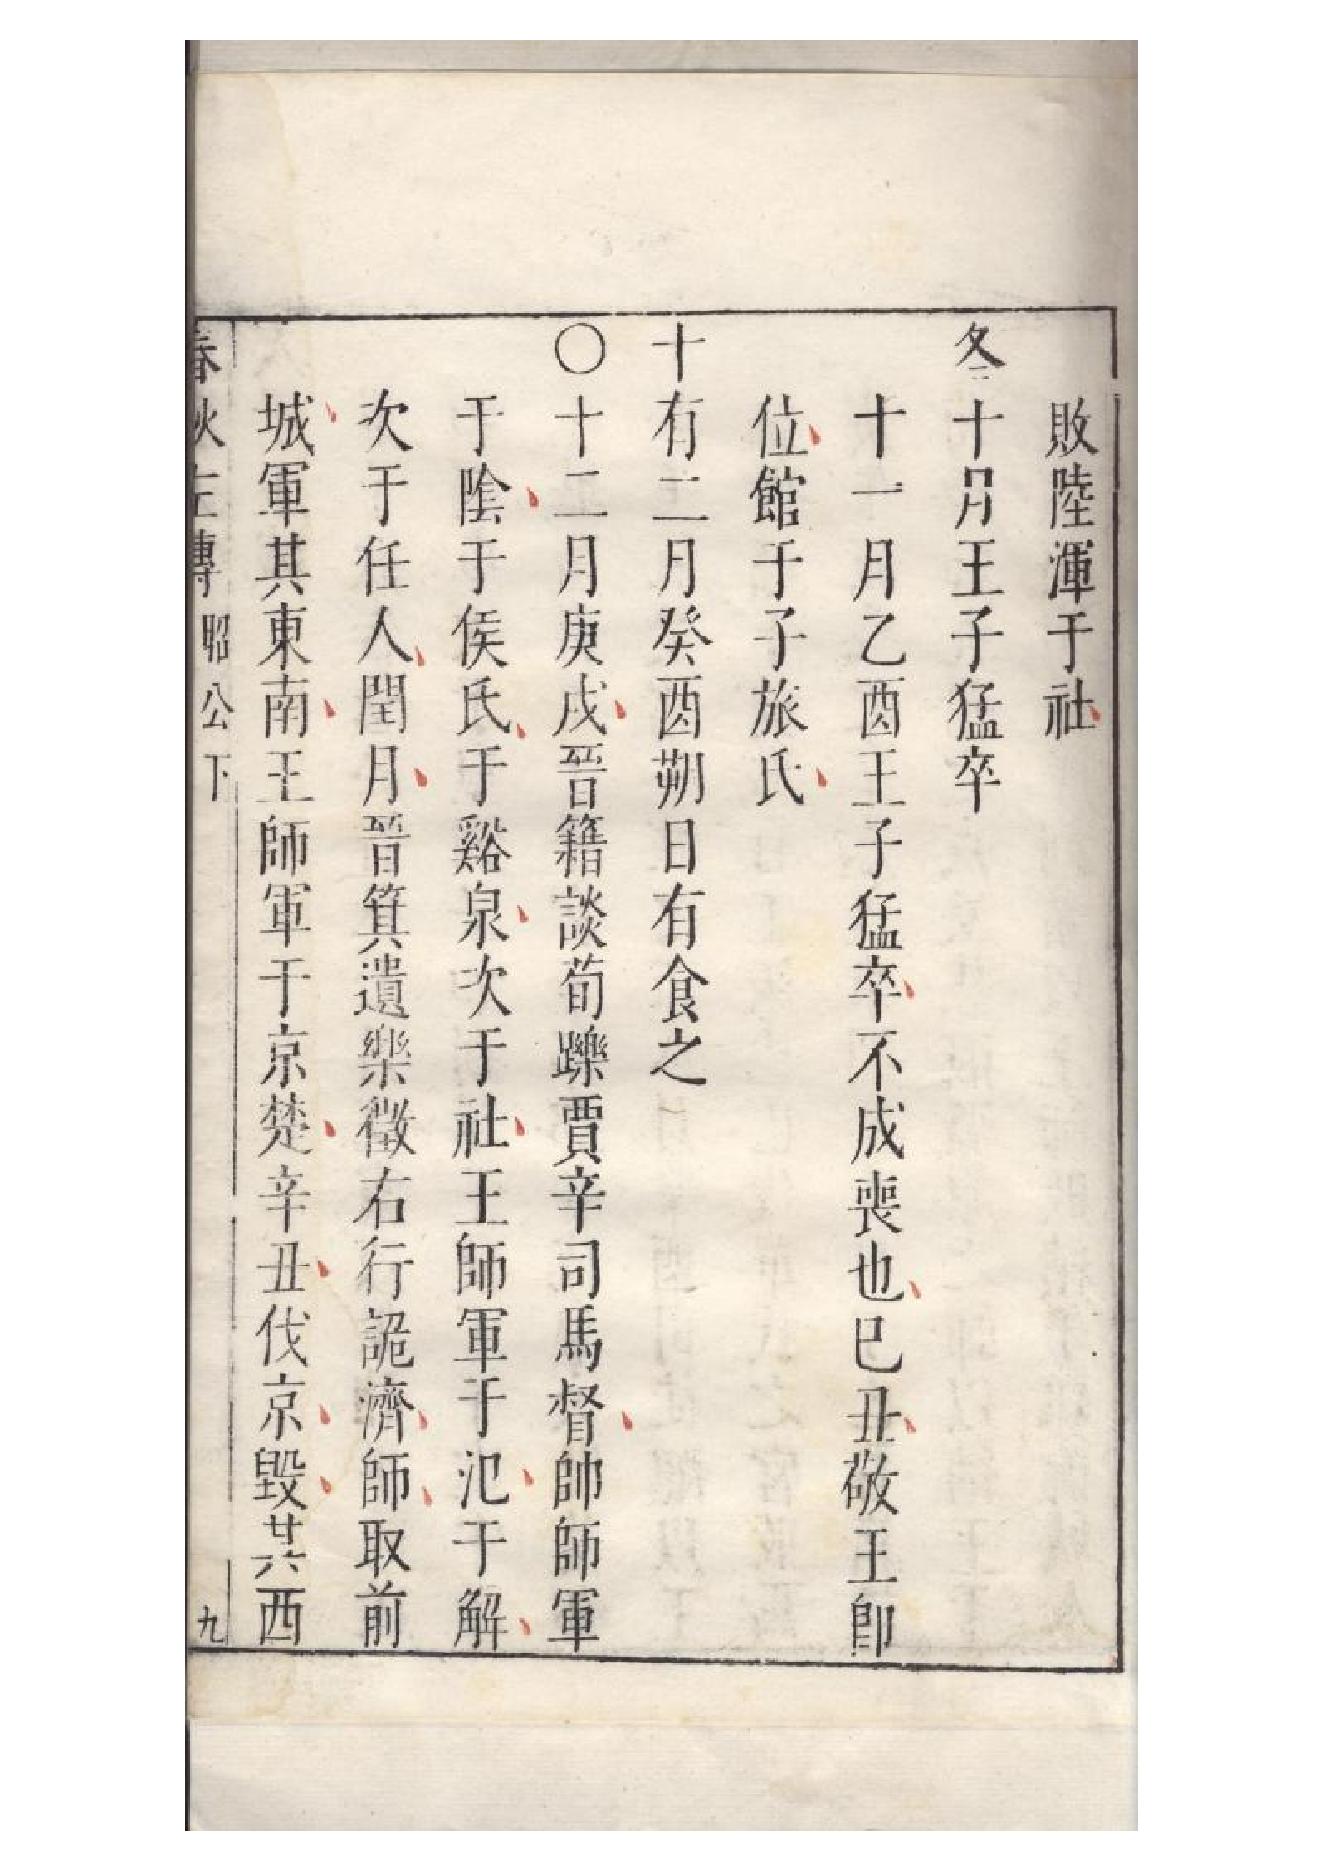 敗陸渾于社
冬十月王子猛卒
十一月乙酉王子猛卒不成喪也巳丑敬王卽
位館于子旅氏
十有二月癸酉朔日有食之
〇十二月庚戌晉籍談荀躒賈辛司馬督帥師軍
于陰于侯氏于谿泉次于社王師軍于氾于解
次于任人閏月晉箕遺樂徵右行詭濟師取前
城軍其東南王師軍于京楚辛丑伐京毀其西
春秋左傳 昭公下 九